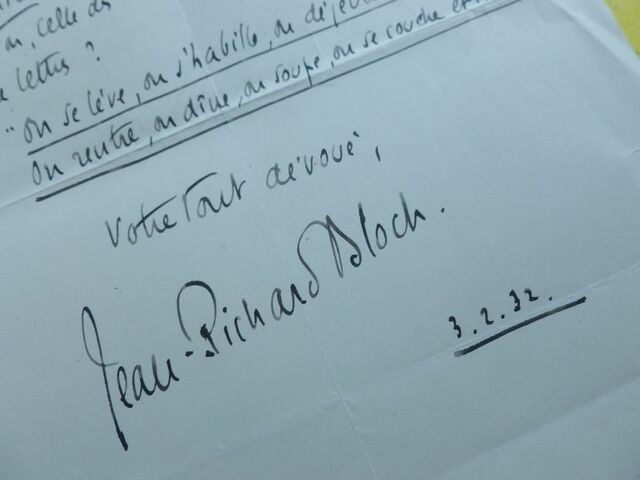 on, celle de
lettres ?
"on se lève, on s'habille, on déjeune
on rentre, on dîne, on soupe, on se couche et
Votre tout dévoué,
Jean-Richard Bloch.
3.2.32.